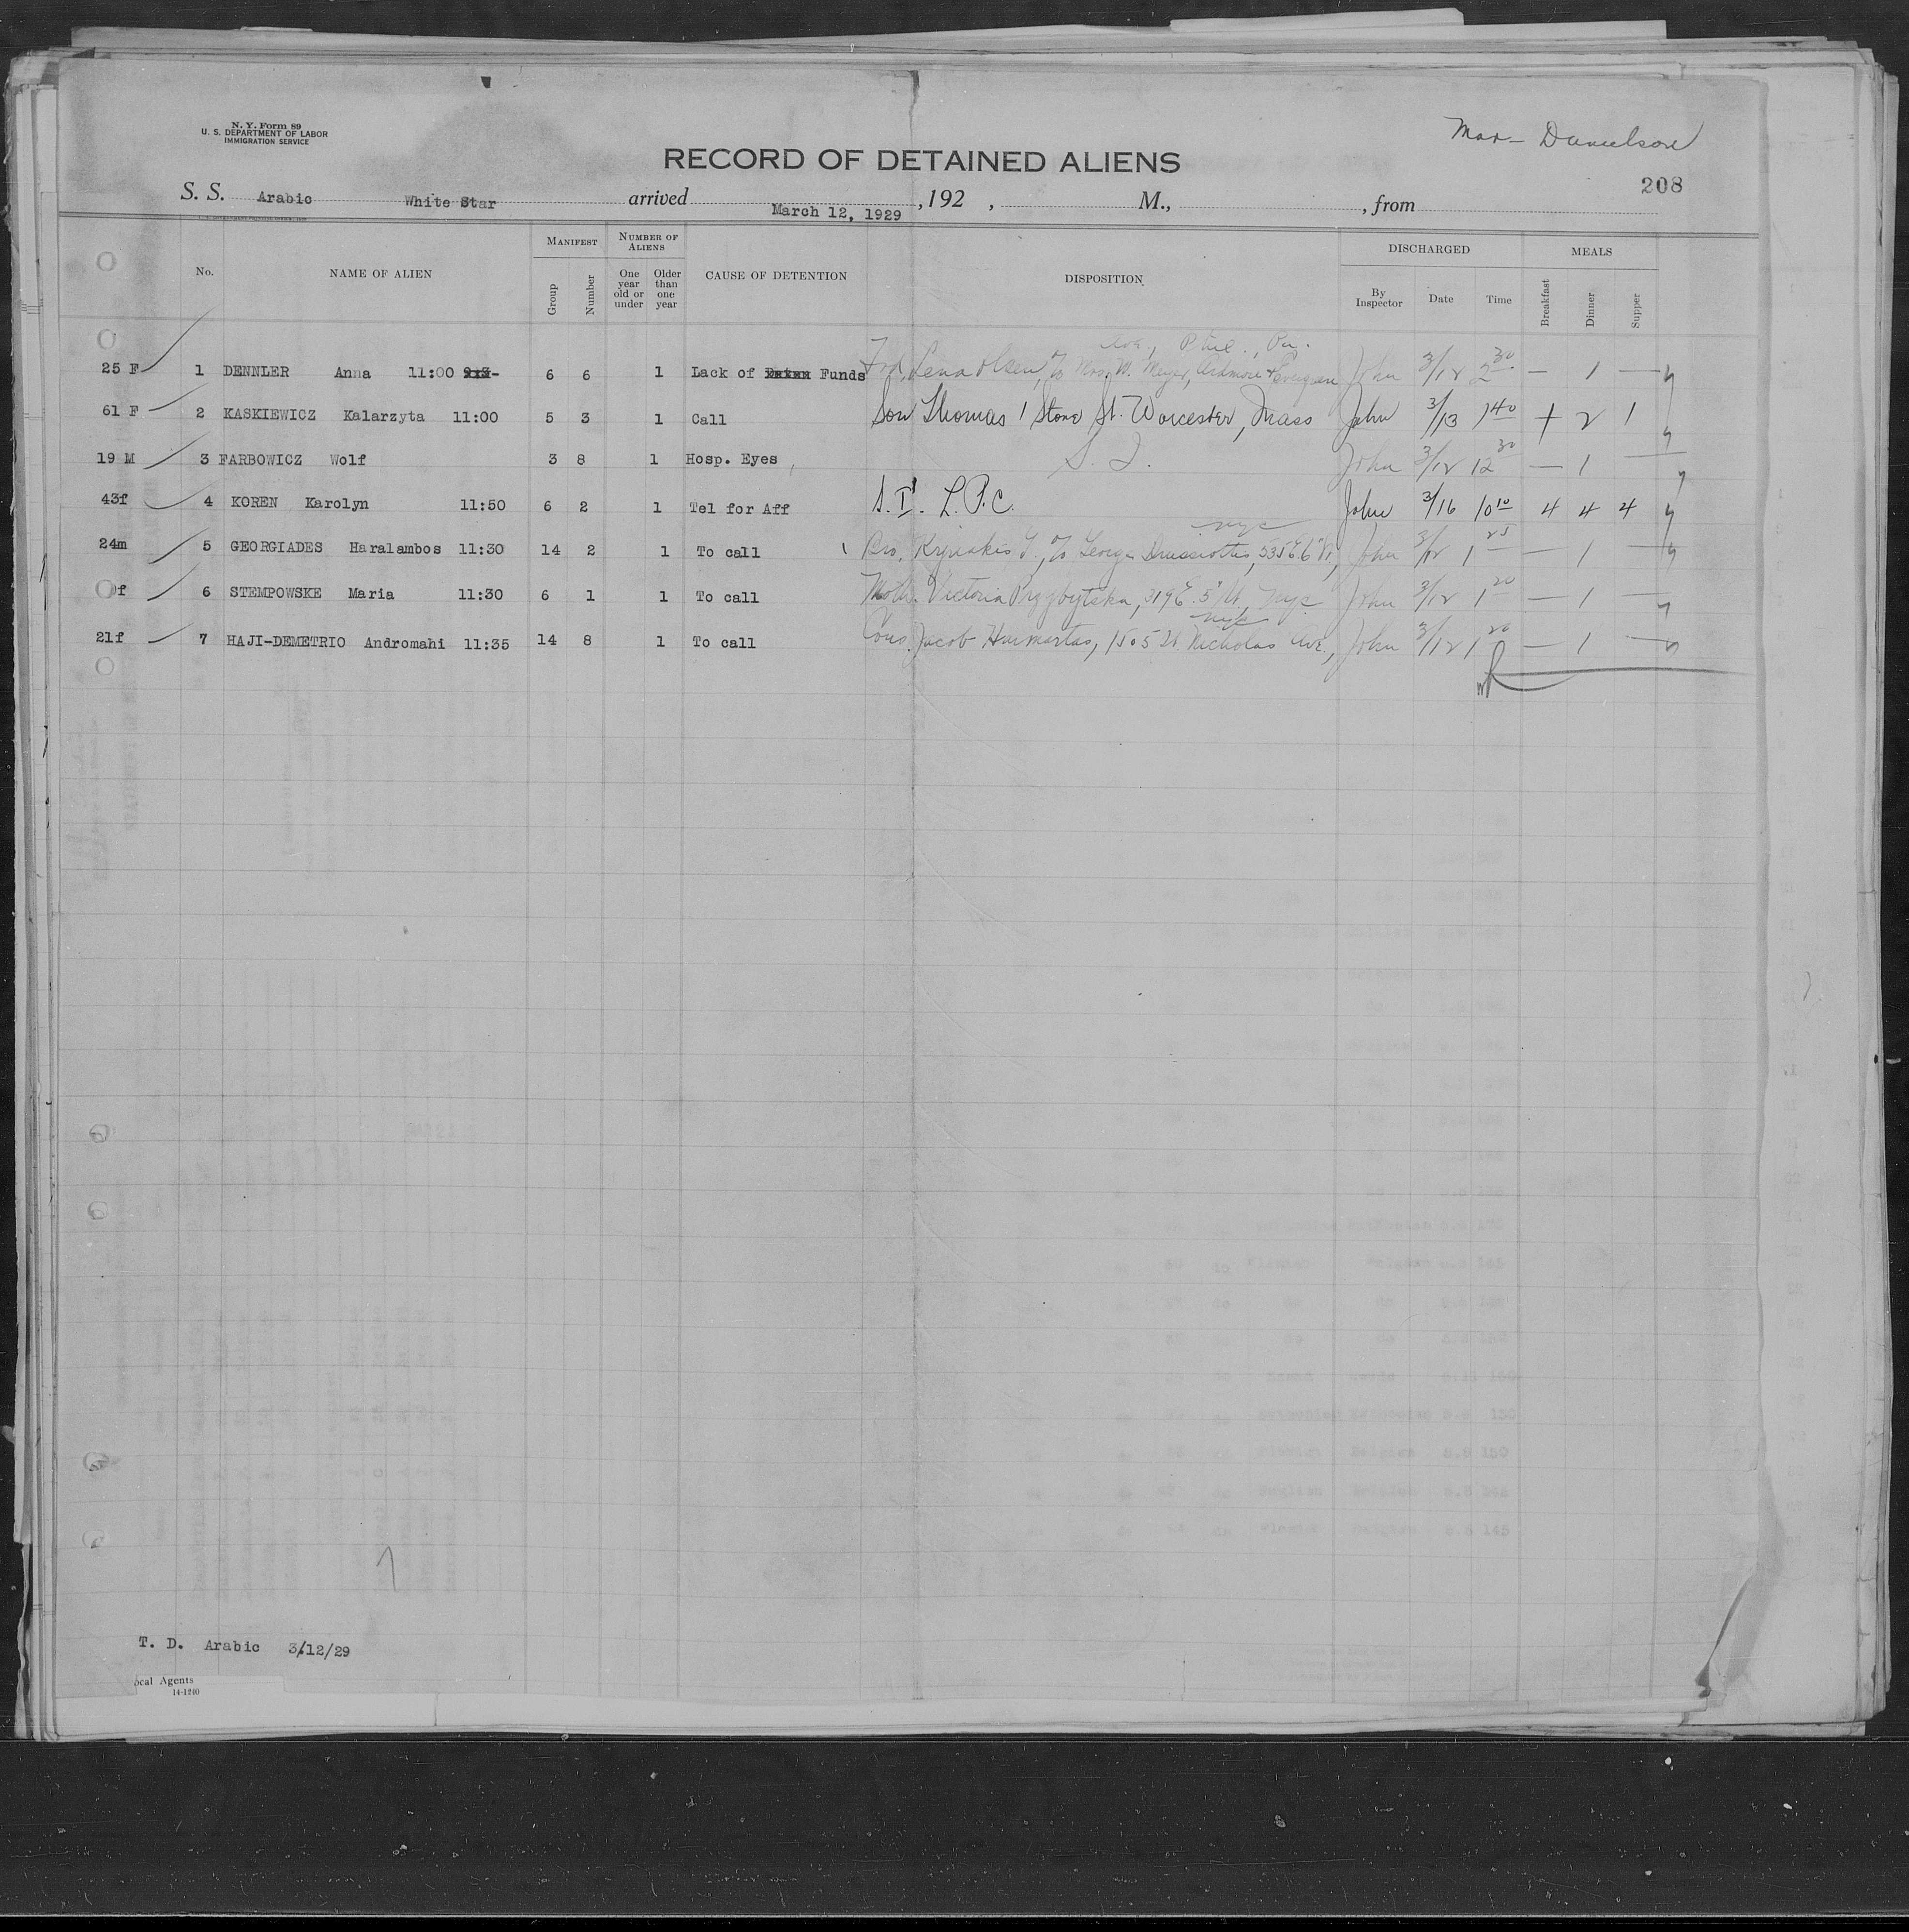 N. Y. Form 89
U. S. DEPARTMENT OF LABOR
IMMIGRATION SERVICE
Danielson
RECORD OF DETAINED ALIENS
208
S. S. Arabic White Star arrived March 12, 1929 , 192 , M., , from
No. NAME OF ALIEN MANIFEST NUMBER OF ALIENS CAUSE OF DETENTION DISPOSITION DISCHARGED MEALS
Group Number One year old or under Older than one year By Inspector Date Time Breakfast Dinner Supper
Ave., Phil., Pa.
25 F 1 DENNLER Anna 11:00 6 6 1 Lack of Funds Frd. Lena Olsen, c/o Mrs. W. Meyer, Ardmore + Evergreen John 3/12 2 30 — 1 —
61 F 2 KASKIEWICZ Kalarzyta 11:00 5 3 1 Call Son Thomas 1 Stone St. Worcester, Mass John 3/13 1 40 + 2 1
19 M 3 FARBOWICZ Wolf 3 8 1 Hosp. Eyes S. I. John 3/12 12 30 — 1 —
43f 4 KOREN Karolyn 11:50 6 2 1 Tel for Aff S. I. L.P.C. John 3/16 10 10 4 4 4
nyc
24m 5 GEORGIADES Haralambos 11:30 14 2 1 To call Bro. Kyriakis G., c/o George 535 E. 6" St., John 3/12 1 25 — 1 —
f 6 STEMPOWSKE Maria 11:30 6 1 1 To call Moth. Victoria Przybytska, 319 E. 5" St, nyc John 3/12 1 20 — 1 —
nyc
21f 7 HAJI-DEMETRIO Andromahi 11:35 14 8 1 To call Cous. Jacob 1505 St. Nicholas Ave., John 3/12 1 20 — 1 —
T. D. Arabic 3/12/29
ocal Agents
14-1240